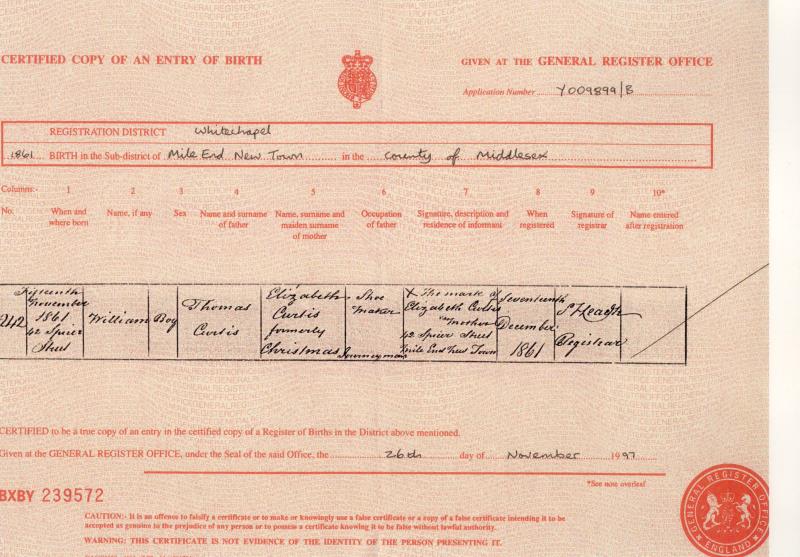 CERTIFIED COPY OF AN ENTRY OF BIRTH
GIVEN AT THE GENERAL REGISTER OFFICE
Application Number Y009899/B
REGISTRATION DISTRICT Whitechapel
1861 BIRTH in the Sub-district of Mile End New Town in the County of Middlesex
Columns:- 1 2 3 4 5 6 7 8 9 10*
No. When and where born Name, if any Sex Name and surname of father Name, surname and maiden surname of mother Occupation of father Signature, description and residence of informant When registered Signature of registrar Name entered after registration
242 Fifteenth November 1861 42 Spicer Street William Boy Thomas Curtis Elizabeth Curtis formerly Christmas Shoe maker Journeyman X The mark of Elizabeth Curtis mother 42 Spicer Street Mile End New Town Seventeenth December 1861 Registrar
CERTIFIED to be a true copy of an entry in the certified copy of a Register of Births in the District above mentioned.
Given at the GENERAL REGISTER OFFICE, under the Seal of the said Office, the 26th day of November 1997
*See note overleaf
BXBY 239572
CAUTION:- It is an offence to falsify a certificate or to make or knowingly use a false certificate or a copy of a false certificate intending it to be
accepted as genuine to the prejudice of any person or to possess a certificate knowing it to be false without lawful authority.
WARNING: THIS CERTIFICATE IS NOT EVIDENCE OF THE IDENTITY OF THE PERSON PRESENTING IT.
GENERAL REGISTER OFFICE
ENGLAND